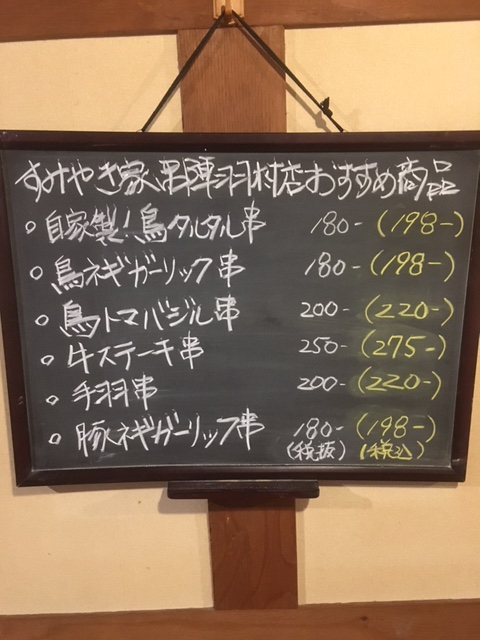 すみやき家串陣羽村店おすすめ商品
○自家製!鳥タルタル串 180-(198-)
○鳥ネギガーリック串 180-(198-)
○鳥トマバジル串 200-(220-)
○牛ステーキ串 250-(275-)
○手羽串 200-(220-)
○豚ネギガーリック串 180-(198-)
(税抜)(税込)